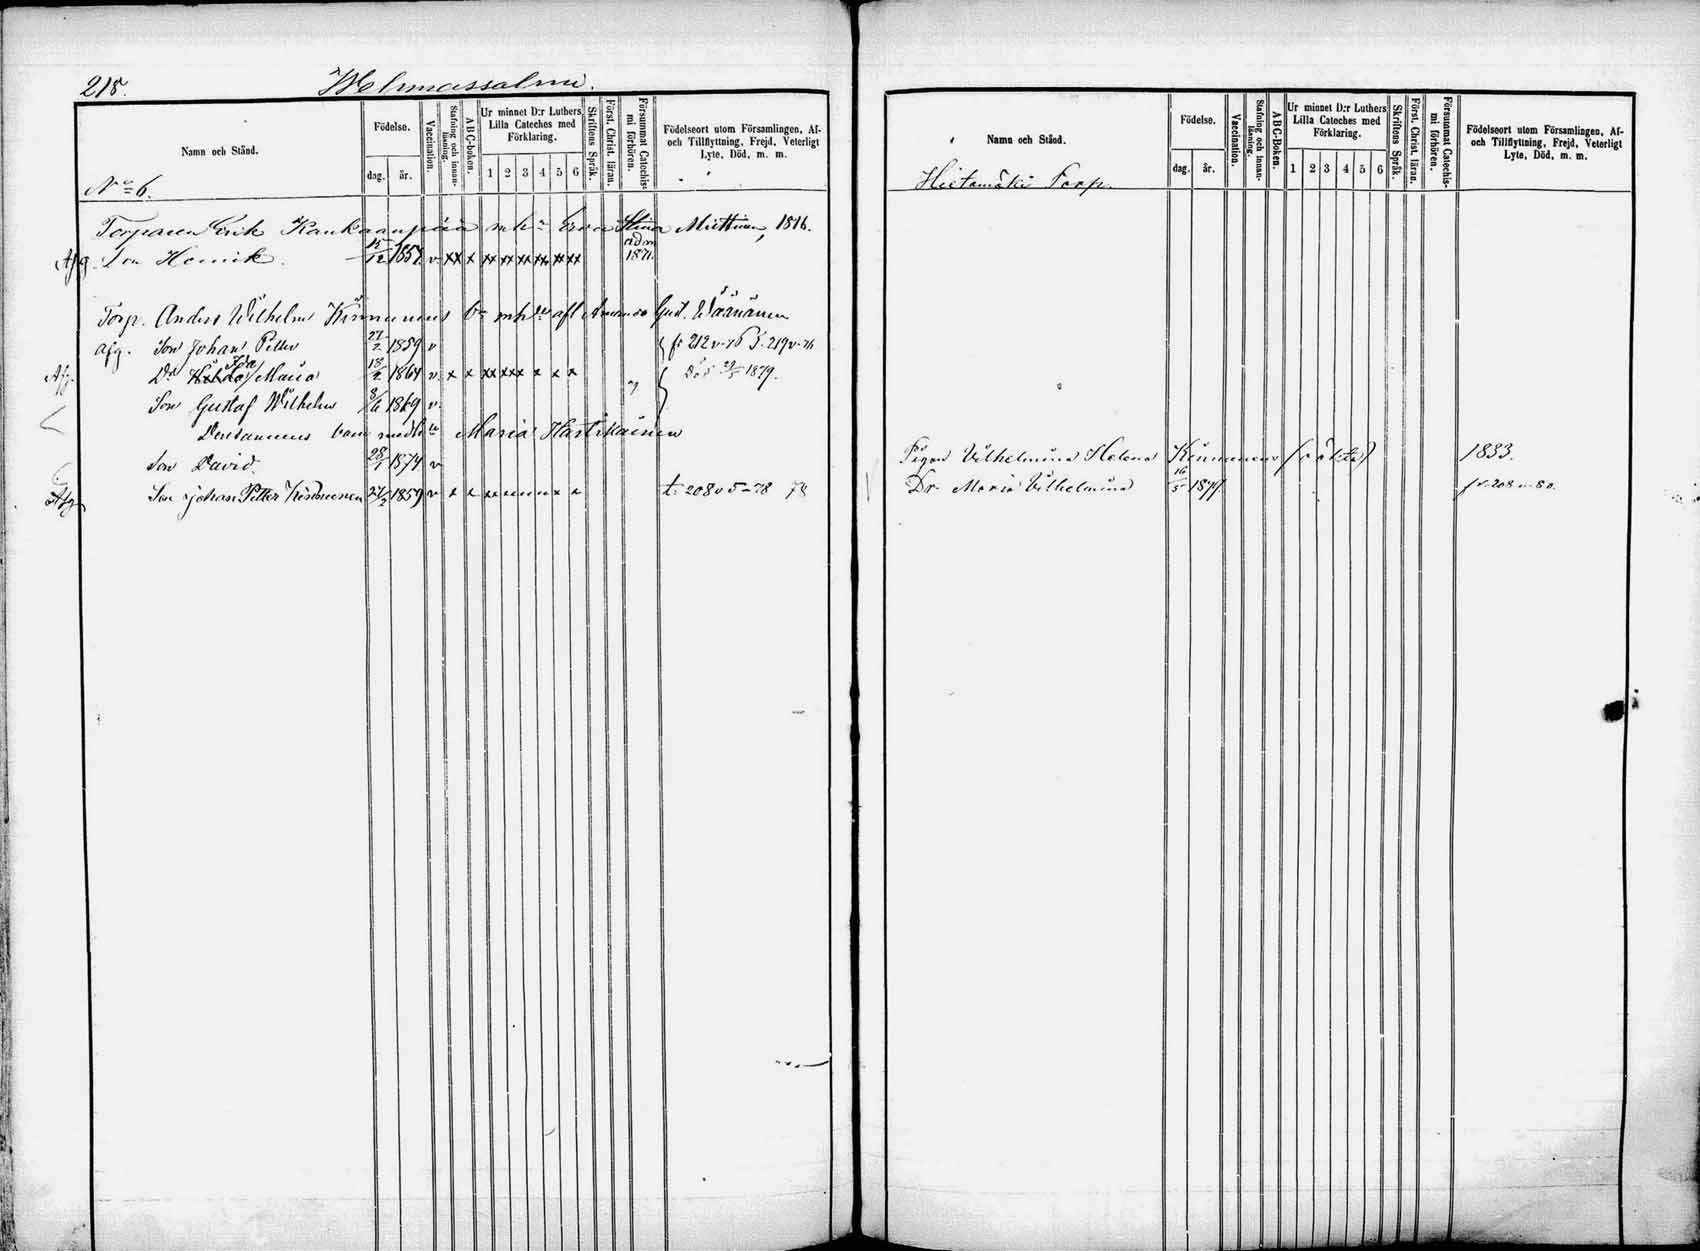 218.
Wehmassalmi.
Namn och Stånd.
Födelse.
dag. år.
Vaccination.
Stafning och innanläsning.
ABC-boken.
Ur minnet D:r Luthers Lilla Cateches med Förklaring.
1 2 3 4 5 6
Skriftens Språk.
Först. Christ. läran.
Försummat Catechismi förhören.
Födelseort utom Församlingen, Af- och Tillflyttning, Frejd, Veterligt Lyte, Död, m. m.
No 6.
Torparen Erik Kankaanpää Stina Miettinen, 1816.
Afg. Son Henrik 15/12 1857. v. adm 1871.
Torp. Anders Wilhelm Kinnunens afl Gust. Väänänen
Afg. Son Johan Petter 27/2 1859 v fr 212 v. 76
Afg. Dr Ida Maria 18/2 1864 v. Död 1879.
Son Gustaf Wilhelm 8/6 1869 v.
Densammes barn med h Maria Hartikainen
Son David 28/1 1874 v
Afg. Son Johan Petter Kinnunen 27/2 1859 v t. 208 v 5 - 78 78
Namn och Stånd.
Födelse.
dag. år.
Vaccination.
Stafning och innanläsning.
ABC-Boken.
Ur minnet D:r Luthers Lilla Cateches med Förklaring.
1 2 3 4 5 6
Skriftens Språk.
Först. Christ. läran.
Försummat Catechismi förhören.
Födelseort utom Församlingen, Af- och Tillflyttning, Frejd, Veterligt Lyte, Död, m. m.
Hietamäki Torp.
Pigan Vilhelmina Helena Kinnunens (oäkta) 1833.
Dr. Maria Vilhelmina 16/5 1877. fr. 208 v. 80.